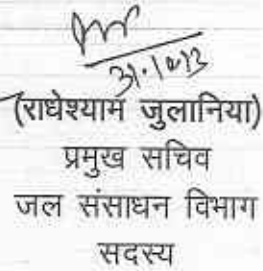 31.10.13
(राधेश्याम जुलानिया)
प्रमुख सचिव
जल संसाधन विभाग
सदस्य